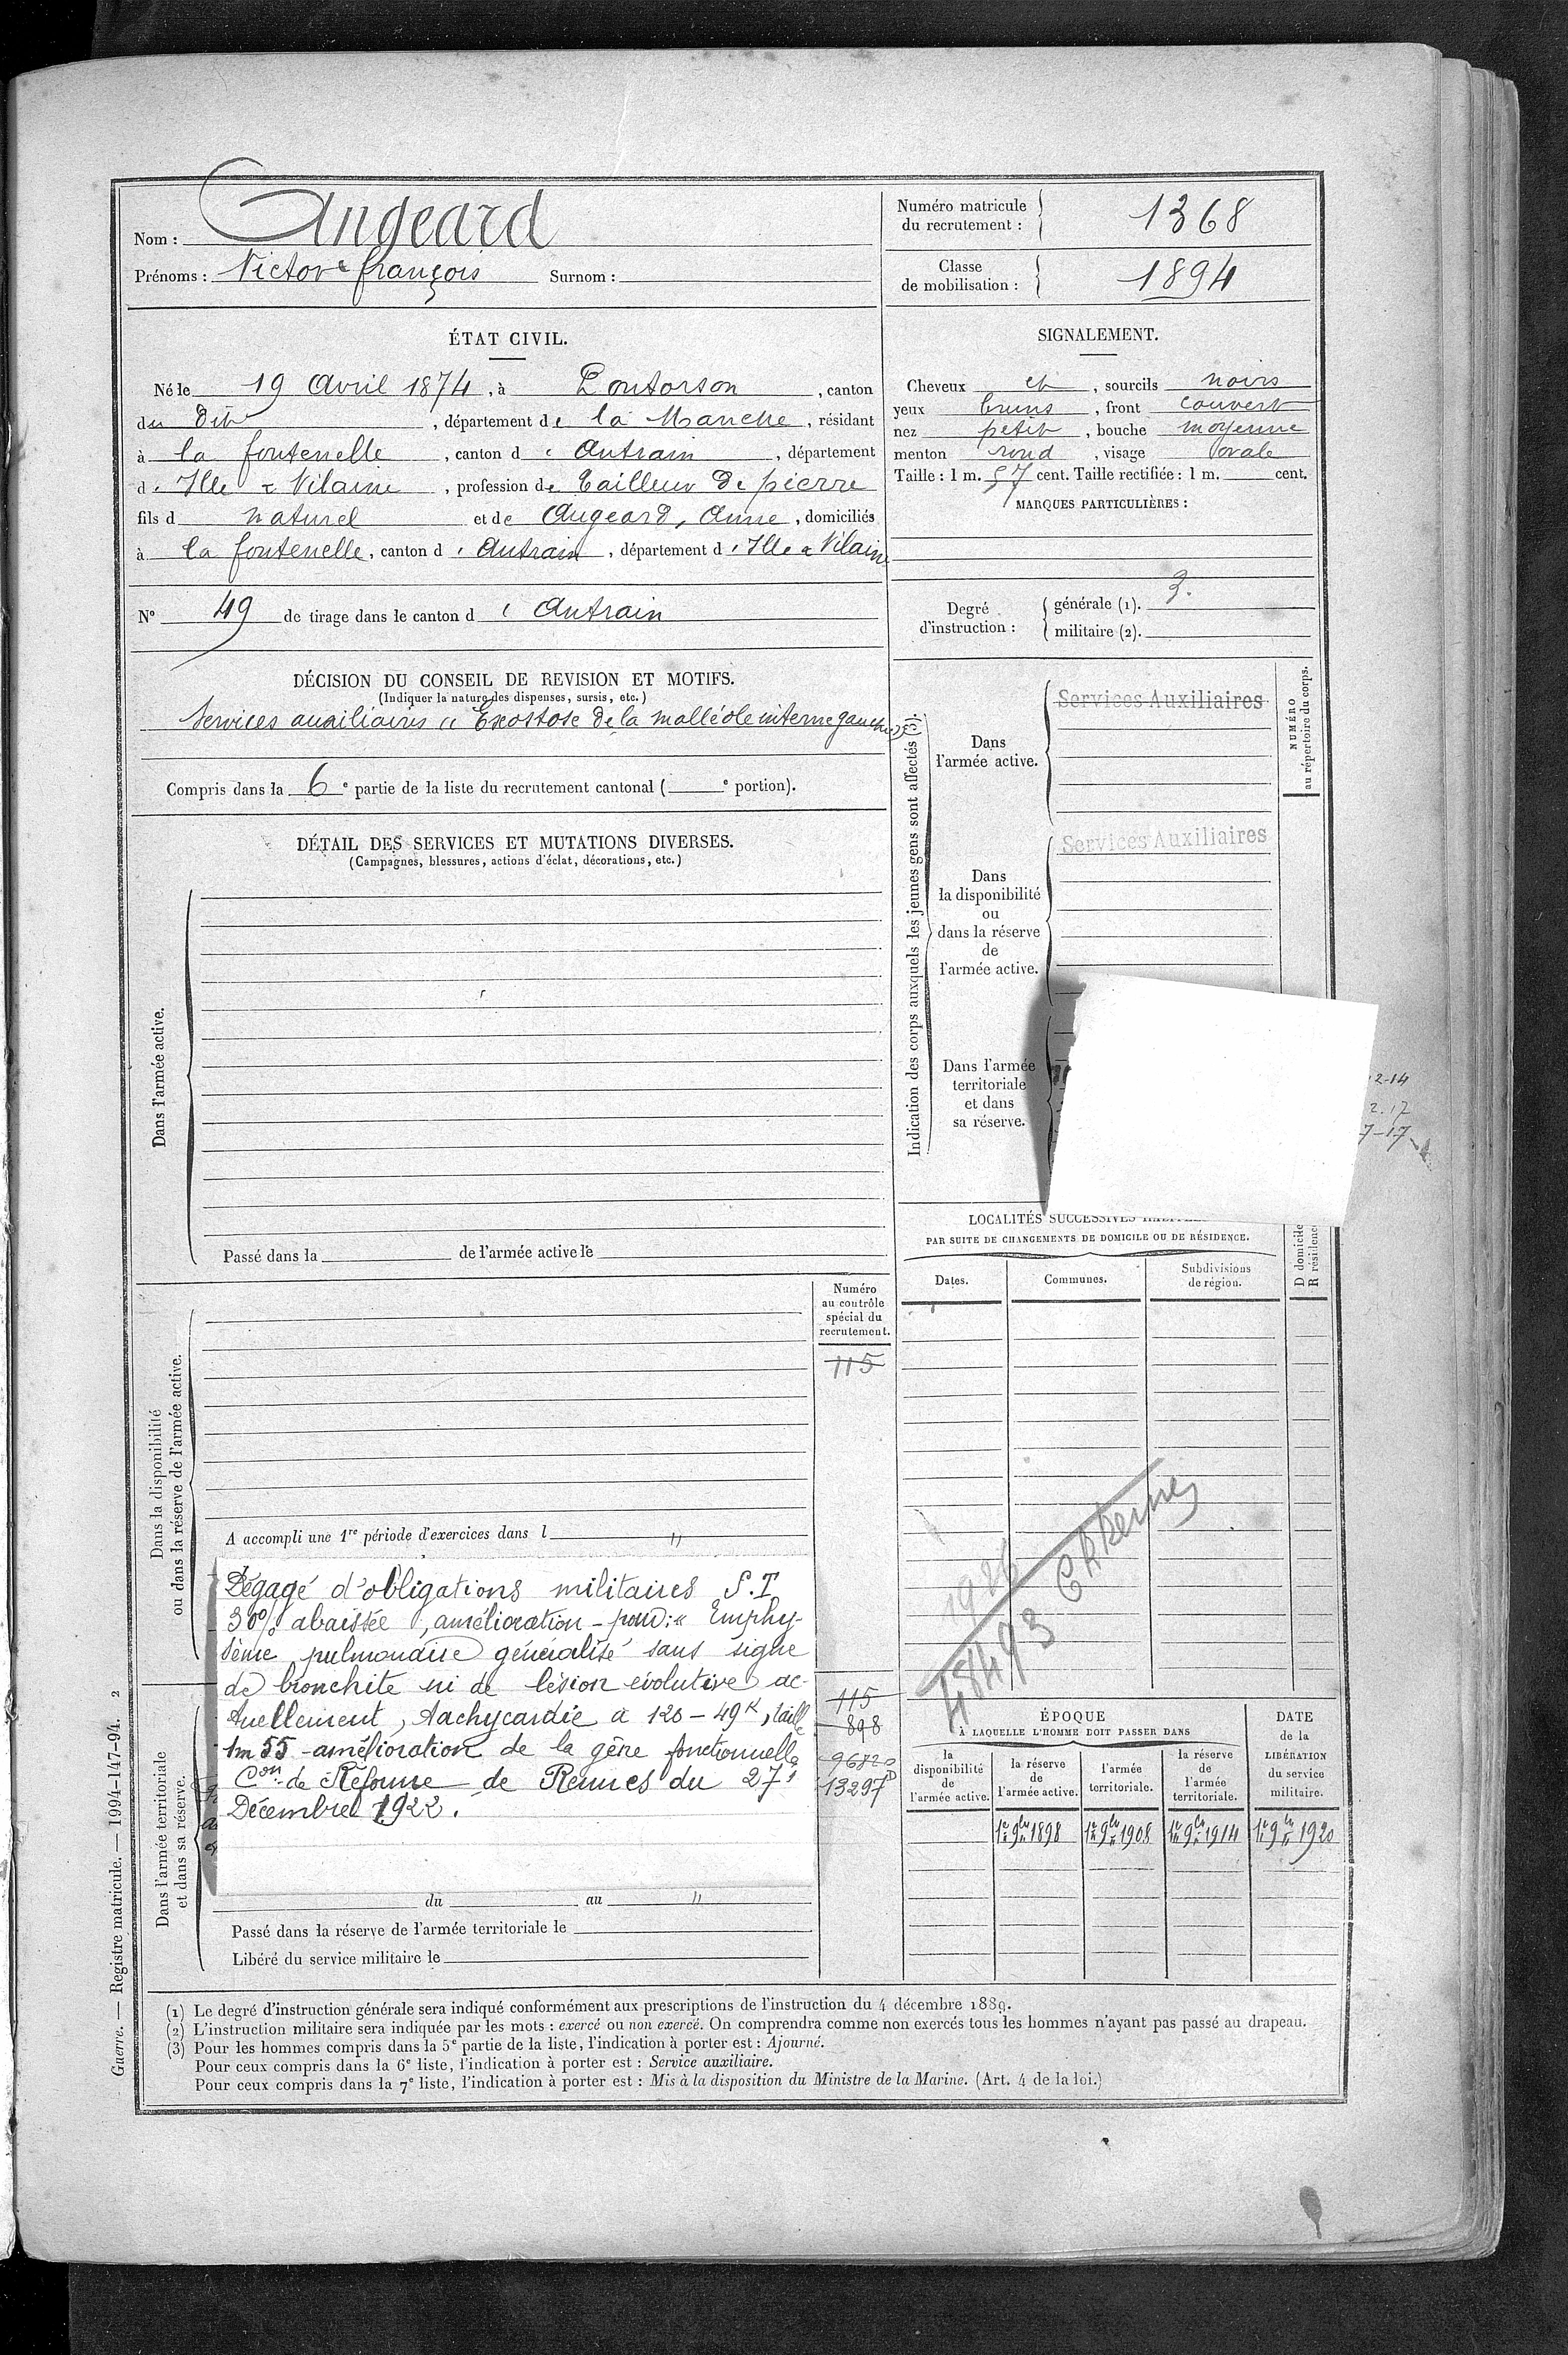 Nom : Angeard
Prénoms : Victor François Surnom :
Numéro matricule du recrutement : 1368
Classe de mobilisation : 1894
ÉTAT CIVIL.
Né le 19 Avril 1874, à Pontorson, canton
du Dit, département de la Manche, résidant
à la fontenelle, canton d'Antrain, département
d'Ille & Vilaine, profession de tailleur de pierre
fils d naturel et de Angeard, Anne, domiciliés
à la fontenelle, canton d'Antrain, département d'Ille & Vilaine
N° 49 de tirage dans le canton d'Antrain
SIGNALEMENT.
Cheveux et, sourcils noirs
yeux bruns, front couvert
nez petit, bouche moyenne
menton rond, visage ovale
Taille : 1 m. 57 cent. Taille rectifiée : 1 m. cent.
MARQUES PARTICULIÈRES :
Degré d'instruction : générale (1). 3.
militaire (2).
DÉCISION DU CONSEIL DE REVISION ET MOTIFS.
(Indiquer la nature des dispenses, sursis, etc.)
Services auxiliaires « Exostose de la malléole interne gauche »
Compris dans la 6e partie de la liste du recrutement cantonal ( e portion).
DÉTAIL DES SERVICES ET MUTATIONS DIVERSES.
(Campagnes, blessures, actions d'éclat, décorations, etc.)
Dans l'armée active.
Passé dans la de l'armée active le
Indication des corps auxquels les jeunes gens sont affectés (3).
Dans
l'armée active.
Services Auxiliaires
NUMÉRO
au répertoire du corps.
Dans
la disponibilité
ou
dans la réserve
de
l'armée active.
Services Auxiliaires
Dans l'armée
territoriale
et dans
sa réserve.
2-14
2.17
7-17
LOCALITÉS SUCCESSIVES
PAR SUITE DE CHANGEMENTS DE DOMICILE OU DE RÉSIDENCE.
Dates.
Communes.
Subdivisions
de région.
D domicile
R résidence
Dans la disponibilité
ou dans la réserve de l'armée active.
Numéro
au contrôle
spécial du
recrutement.
115
A accompli une 1re période d'exercices dans l "
Dégagé d'obligations militaires S.T
30% abaissée, amélioration - pour : « Emphy-
sème pulmonaire généralisé sans signe
de bronchite ni de lésion évolutive ac-
tuellement, tachycardie à 120 - 49K, taille
1m55 - amélioration de la gêne fonctionnelle
Con de Réforme de Rennes du 27
Décembre 1922.
115
898
13297
1926
48493
Dans l'armée territoriale
et dans sa réserve.
du au "
Passé dans la réserve de l'armée territoriale le
Libéré du service militaire le
ÉPOQUE
À LAQUELLE L'HOMME DOIT PASSER DANS
la
disponibilité
de
l'armée active.
la réserve
de
l'armée active.
l'armée
territoriale.
la réserve
de
l'armée
territoriale.
DATE
de la
LIBÉRATION
du service
militaire.
1er 9bre 1898
1er 9bre 1908
1er 9bre 1914
1er 9bre 1920
(1) Le degré d'instruction générale sera indiqué conformément aux prescriptions de l'instruction du 4 décembre 1889.
(2) L'instruction militaire sera indiquée par les mots : exercé ou non exercé. On comprendra comme non exercés tous les hommes n'ayant pas passé au drapeau.
(3) Pour les hommes compris dans la 5e partie de la liste, l'indication à porter est : Ajourné.
Pour ceux compris dans la 6e liste, l'indication à porter est : Service auxiliaire.
Pour ceux compris dans la 7e liste, l'indication à porter est : Mis à la disposition du Ministre de la Marine. (Art. 4 de la loi.)
Guerre. — Registre matricule. — 1994-147-94. 2